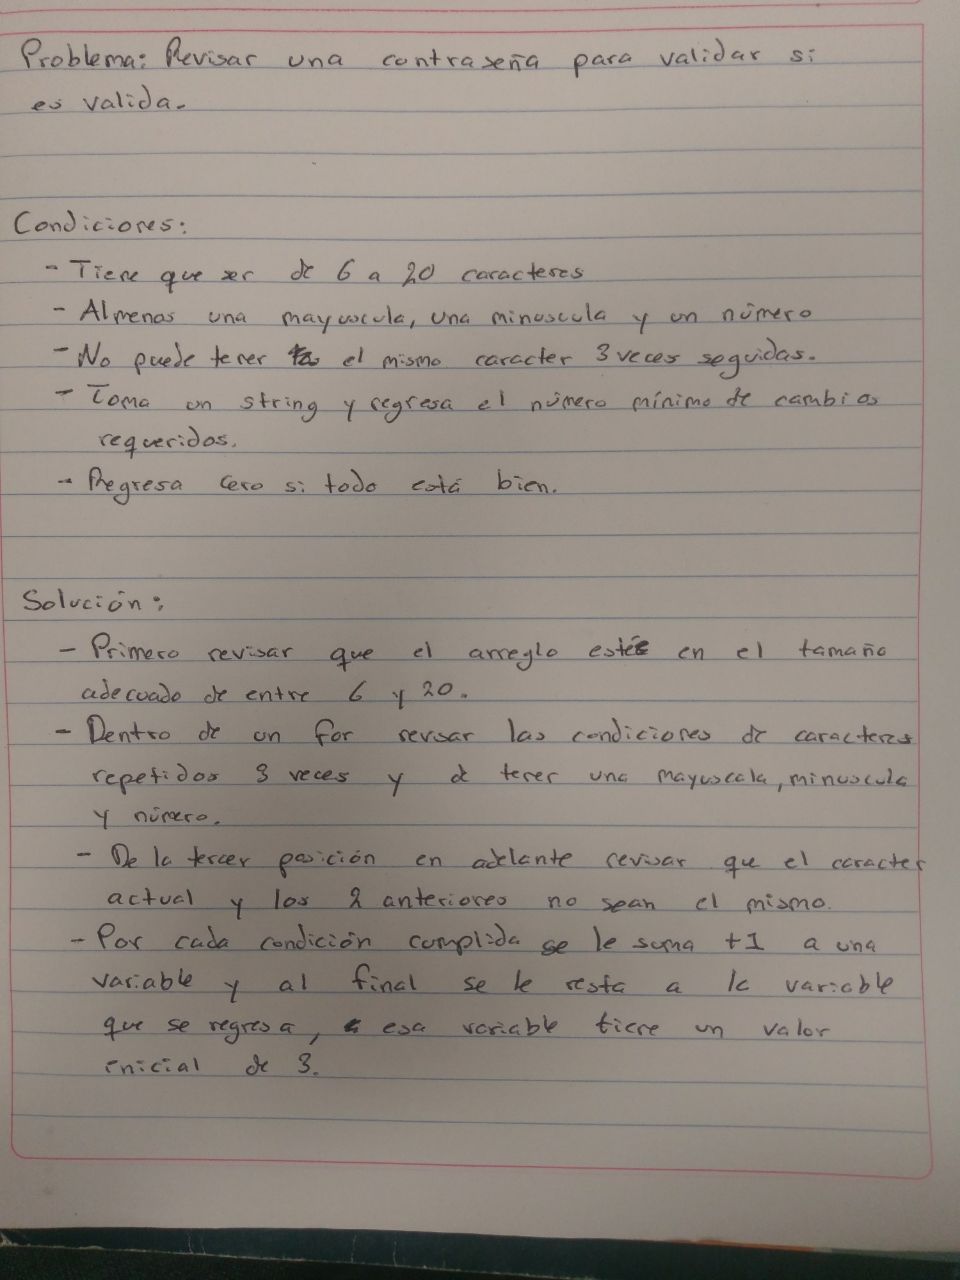 Problema: Revisar una contraseña para validar si
es valida.
Condiciones:
- Tiene que ser de 6 a 20 caracteres
- Almenos una mayuscula, una minuscula y un número
- No puede tener el mismo caracter 3 veces seguidas.
- Toma un string y regresa el número mínimo de cambios
requeridos.
- Regresa cero si todo está bien.
Solución:
- Primero revisar que el arreglo esté en el tamaño
adecuado de entre 6 y 20.
- Dentro de un for revisar las condiciones de caracteres
repetidos 3 veces y d tener una mayuscula, minuscula
y número.
- De la tercer posición en adelante revisar que el caracter
actual y los 2 anteriores no sean el mismo.
- Por cada condición cumplida se le suma +1 a una
variable y al final se le resta a la variable
que se regresa, esa variable tiene un valor
inicial de 3.